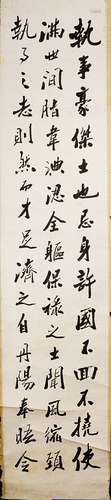 執事豪傑士也忘身許國不回不撓使
滿世間脂韋淟涊全軀保祿之士聞風縮頸
執事之志則然而才足濟之自丹陽奉晤令